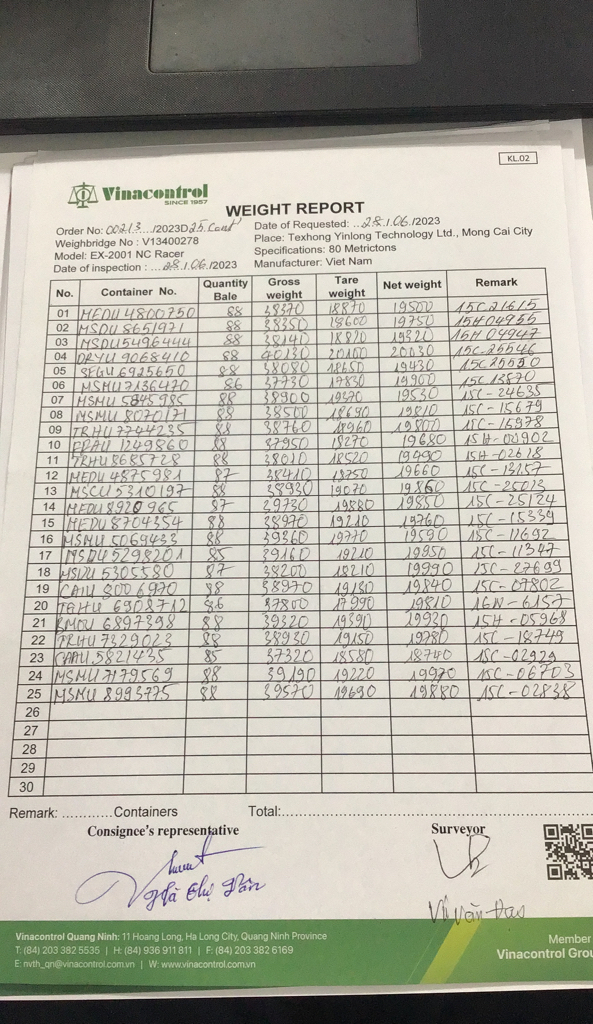 KL.02
Vinacontrol
SINCE 1957
WEIGHT REPORT
Order No: 00213 /2023D25 Cont
Date of Requested: 28/06/2023
Weighbridge No : V13400278
Place: Texhong Yinlong Technology Ltd., Mong Cai City
Model: EX-2001 NC Racer
Specifications: 80 Metrictons
Date of inspection : 28/06/2023
Manufacturer: Viet Nam
No. Container No. Quantity Bale Gross weight Tare weight Net weight Remark
01 MEDU 4800750 88 38370 18870 19500 15C21615
02 MSDU 8651971 88 38350 18600 19750 15H04955
03 MSDU5496444 88 38140 18820 19320 15H 04947
04 DRYU 9068410 88 40130 20100 20030 15C-25546
05 SEGU 6925650 88 38080 18650 19430 15C25530
06 MSMU7136470 86 37730 17830 19900 15C13870
07 MSMU 5845985 88 38900 19370 19530 15C-24635
08 MSMU 8070171 88 38500 18690 19810 15C-15679
09 TRHU 7744235 88 38760 18960 19800 15C-16978
10 88 37950 18270 19680 15H-00902
11 TRHU8685728 88 38010 18520 19490 15H-02618
12 MEDU 4875981 87 38410 18750 19660 15C-13157
13 MSCU5310197 88 38930 19070 19860 15C-25023
14 MEDU 8920965 87 39730 19880 19850 15C-25124
15 MEDU 8704354 88 38970 19210 19760 15C-15334
16 MSMU 5069433 88 39360 19770 19590 15C-12692
17 MSDU5298201 85 39160 19210 19950 15C-11347
18 MSDU 5305580 87 38200 18210 19990 15C-27699
19 CAIU 800 6970 88 38970 19130 19840 15C-07802
20 TGHU 6308712 86 37800 17990 19810 16N-6157
21 BMOU 6897398 88 39320 19390 19930 15H-05968
22 TRHU 7329023 88 38930 19150 19780 15C-18749
23 CAAU 5821435 85 37320 18580 18740 15C-02929
24 MSMU7179569 88 39190 19220 19970 15C-06703
25 MSMU 8993775 88 39570 19690 19880 15C-02838
26
27
28
29
30
Remark: ............Containers Total:
Consignee's representative Surveyor
Vũ Văn
Vinacontrol Quang Ninh: 11 Hoang Long, Ha Long City, Quang Ninh Province
T: (84) 203 382 5535 | H: (84) 936 911 811 | F: (84) 203 382 6169
E: nvth_qn@vinacontrol.com.vn | W: www.vinacontrol.com.vn
Member
Vinacontrol Grou